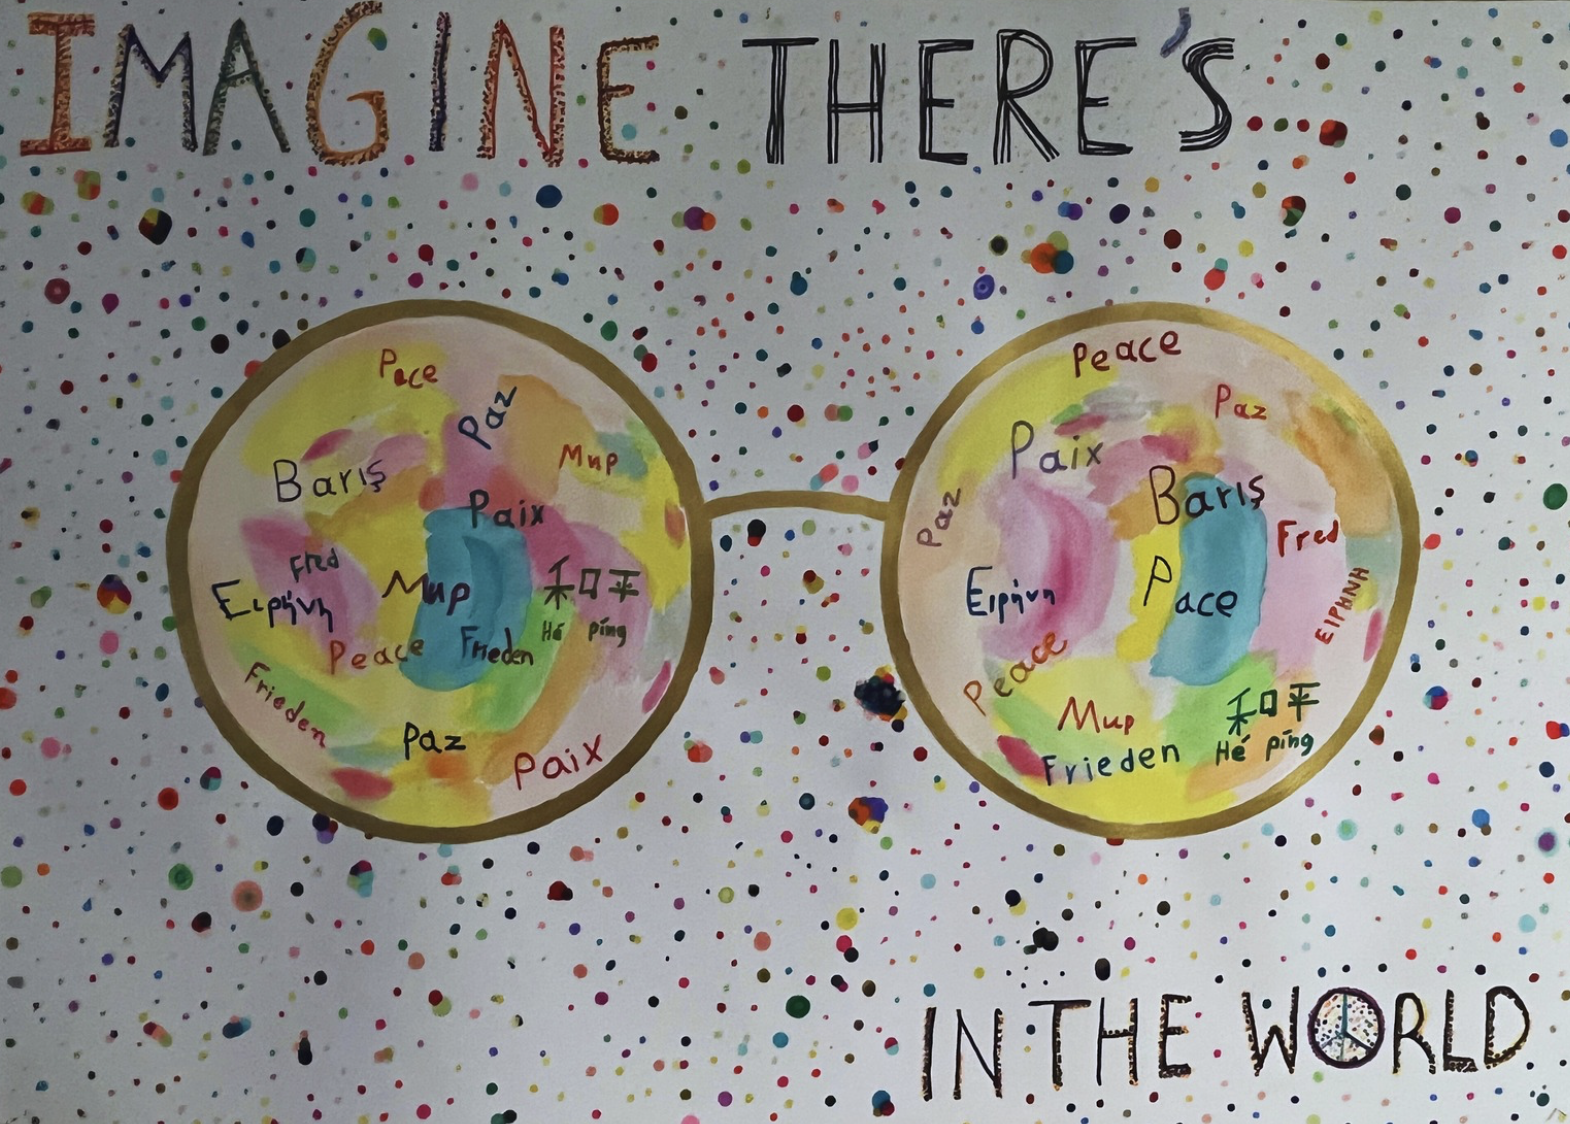 IMAGINE THERE'S...
Pace
Paz
Барış
Мир
Paix
Fred
Ειρήνη
Мир
和平
Hé píng
Peace
Frieden
Frieden
Paz
Paix
Peace
Paz
Paix
Barış
Paz
Fred
Ειρήνη
Pace
ΕΙΡΗΝΗ
Peace
Мир
和平
Hé píng
Frieden
IN THE WORLD